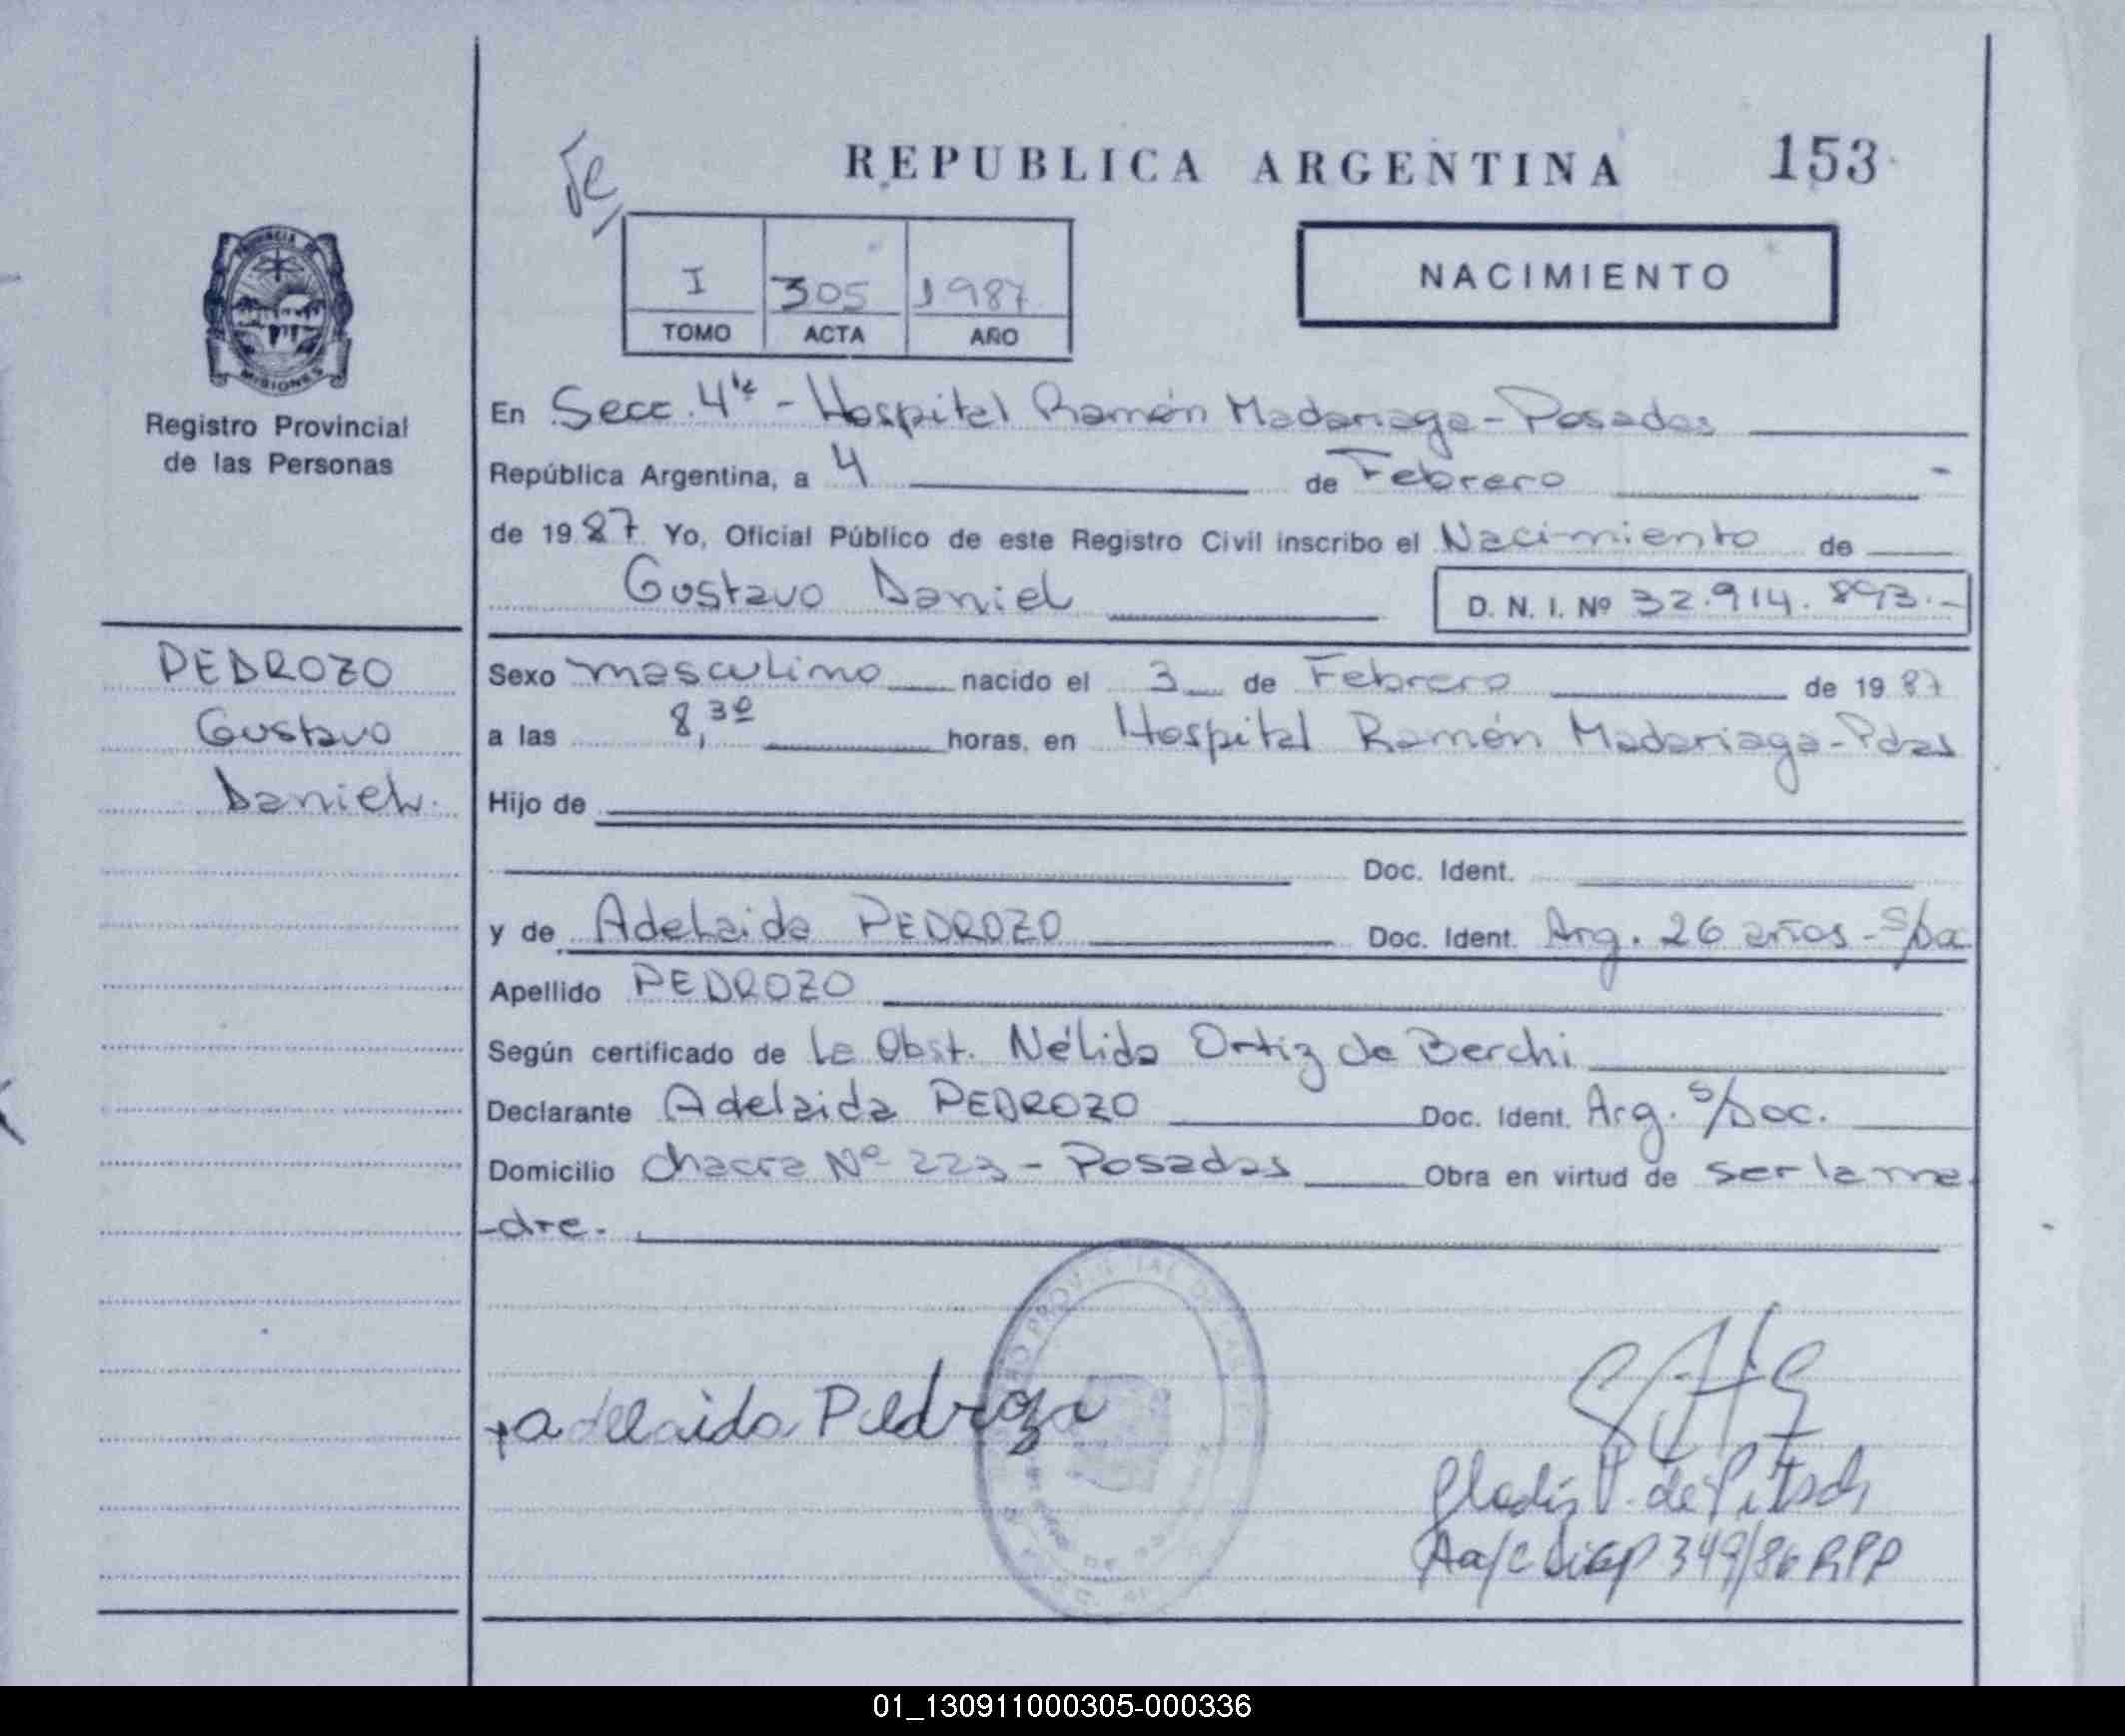 REPUBLICA ARGENTINA
153
I 305 1987
TOMO ACTA AÑO
NACIMIENTO
PROVINCIA DE
MISIONES
Registro Provincial
de las Personas
En Secc. 4ta - Hospital Ramón Madariaga - Posadas
República Argentina, a 4 de Febrero
de 1987 Yo, Oficial Público de este Registro Civil inscribo el Nacimiento de
Gustavo Daniel
D. N. I. Nº 32.914.893.-
PEDROZO
Gustavo
Daniel.
Sexo masculino nacido el 3 de Febrero de 1987
a las 8,30 horas, en Hospital Ramón Madariaga-Pdas
Hijo de
Doc. Ident.
y de Adelaida PEDROZO Doc. Ident. Arg. 26 años - S/Do
Apellido PEDROZO
Según certificado de la Obst. Nélida Ortiz de Berchi
Declarante Adelaida PEDROZO Doc. Ident. Arg. S/Doc.
Domicilio Chacra Nº 223 - Posadas Obra en virtud de ser la ma
-dre.
adelaida Pedrozo
Gladis V. de Pitsch
349/86 RPP
01_130911000305-000336